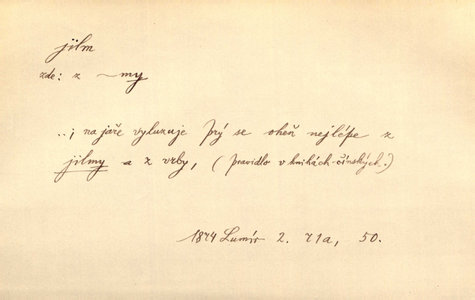 jilm
zde: z ~my
..; na jaře vyluzuje prý se oheň nejlépe z
jilmy a z vrby, (pravidlo v knihách čínských.)
1874 Lumír 2. 71a, 50.